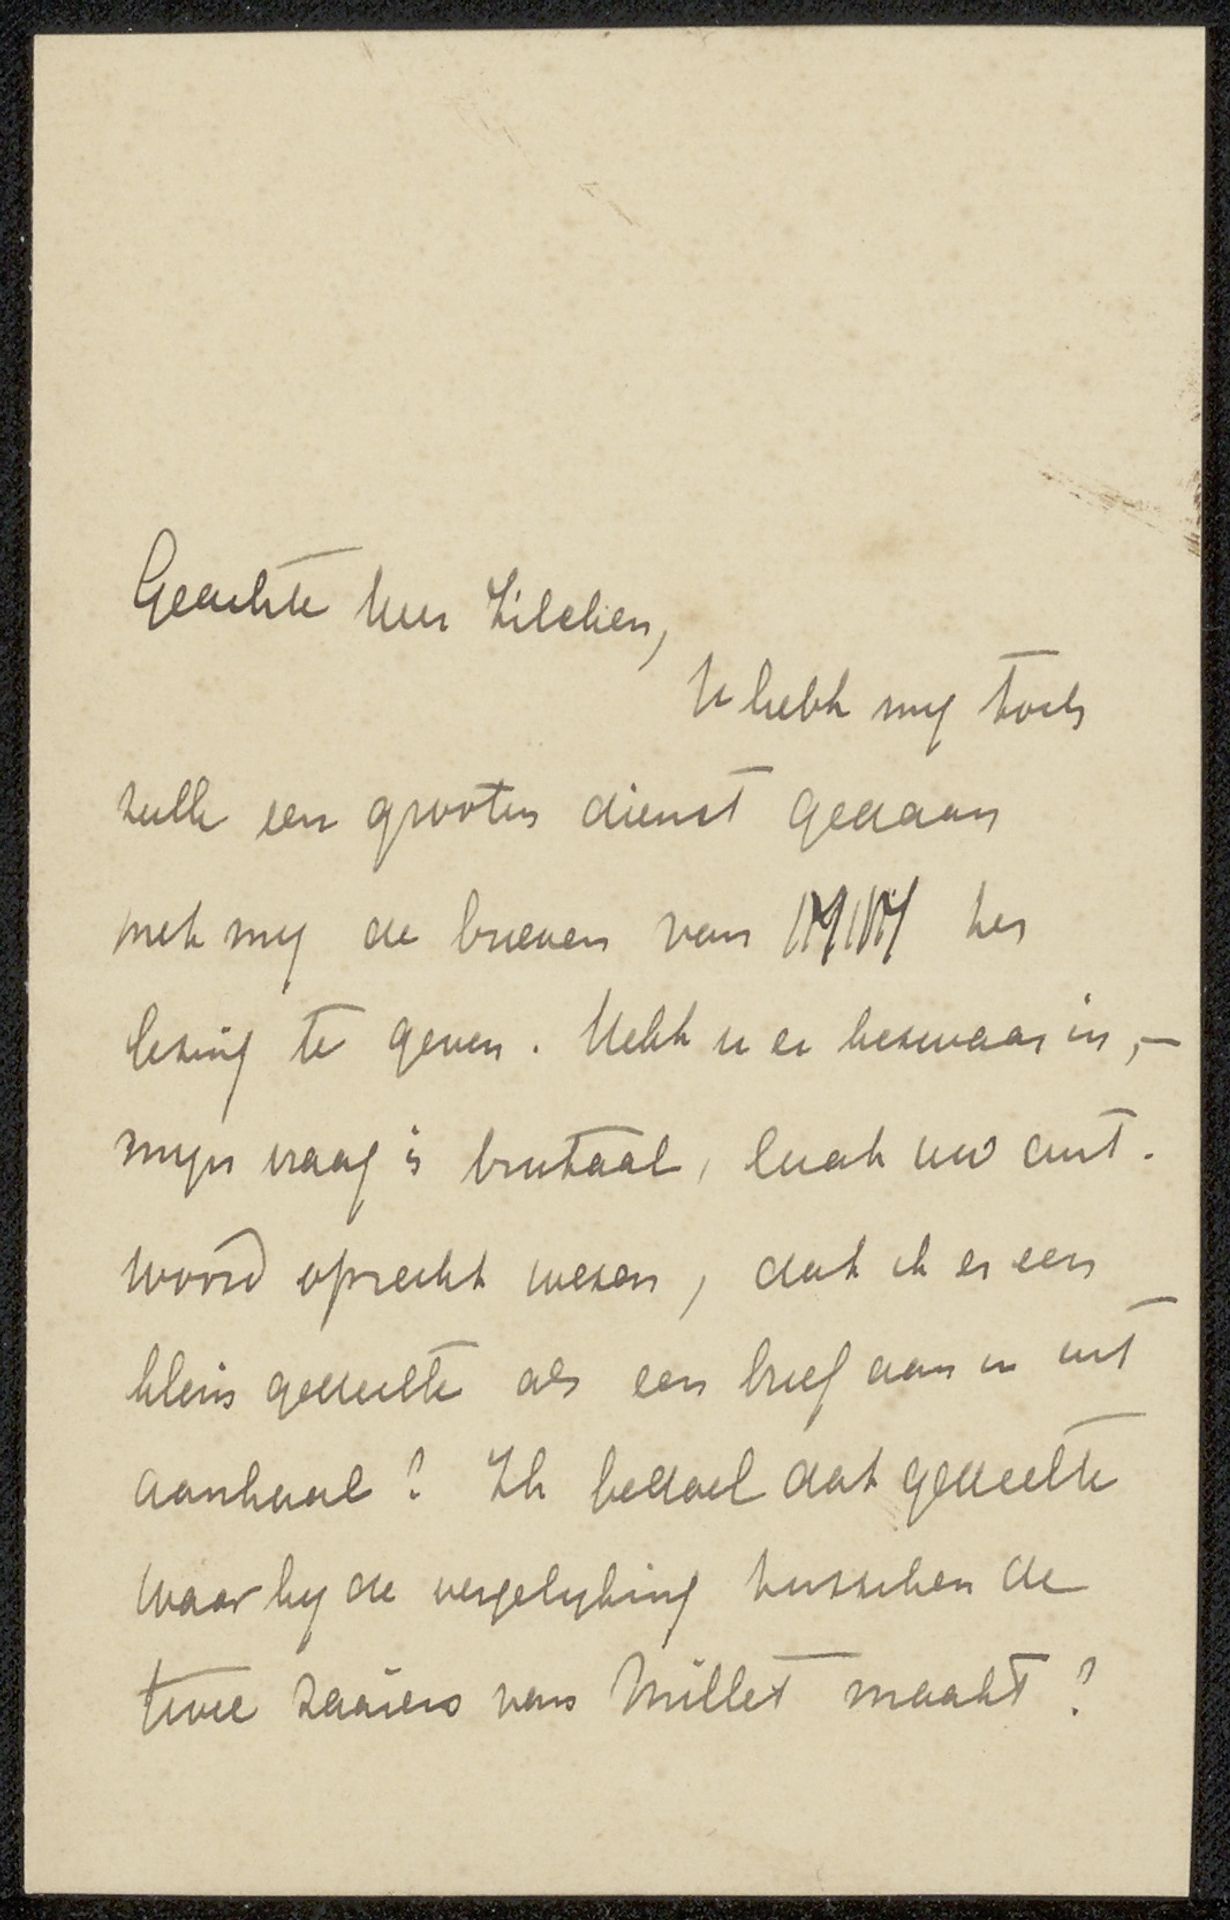 Geachte heer Zilcken,
U hebt mij toch
zulk een grooten dienst gedaan
met mij de brieven van ter
lezing te geven. Hebt u er bezwaar in, –
mijn vraag is brutaal, laat uw ant-
woord oprecht wezen, dat ik er een
klein gedeelte als een brief aan u uit
aanhaal? Ik bedoel dat gedeelte
waar hij de vergelijking tusschen de
twee zaaiers van Millet maakt?